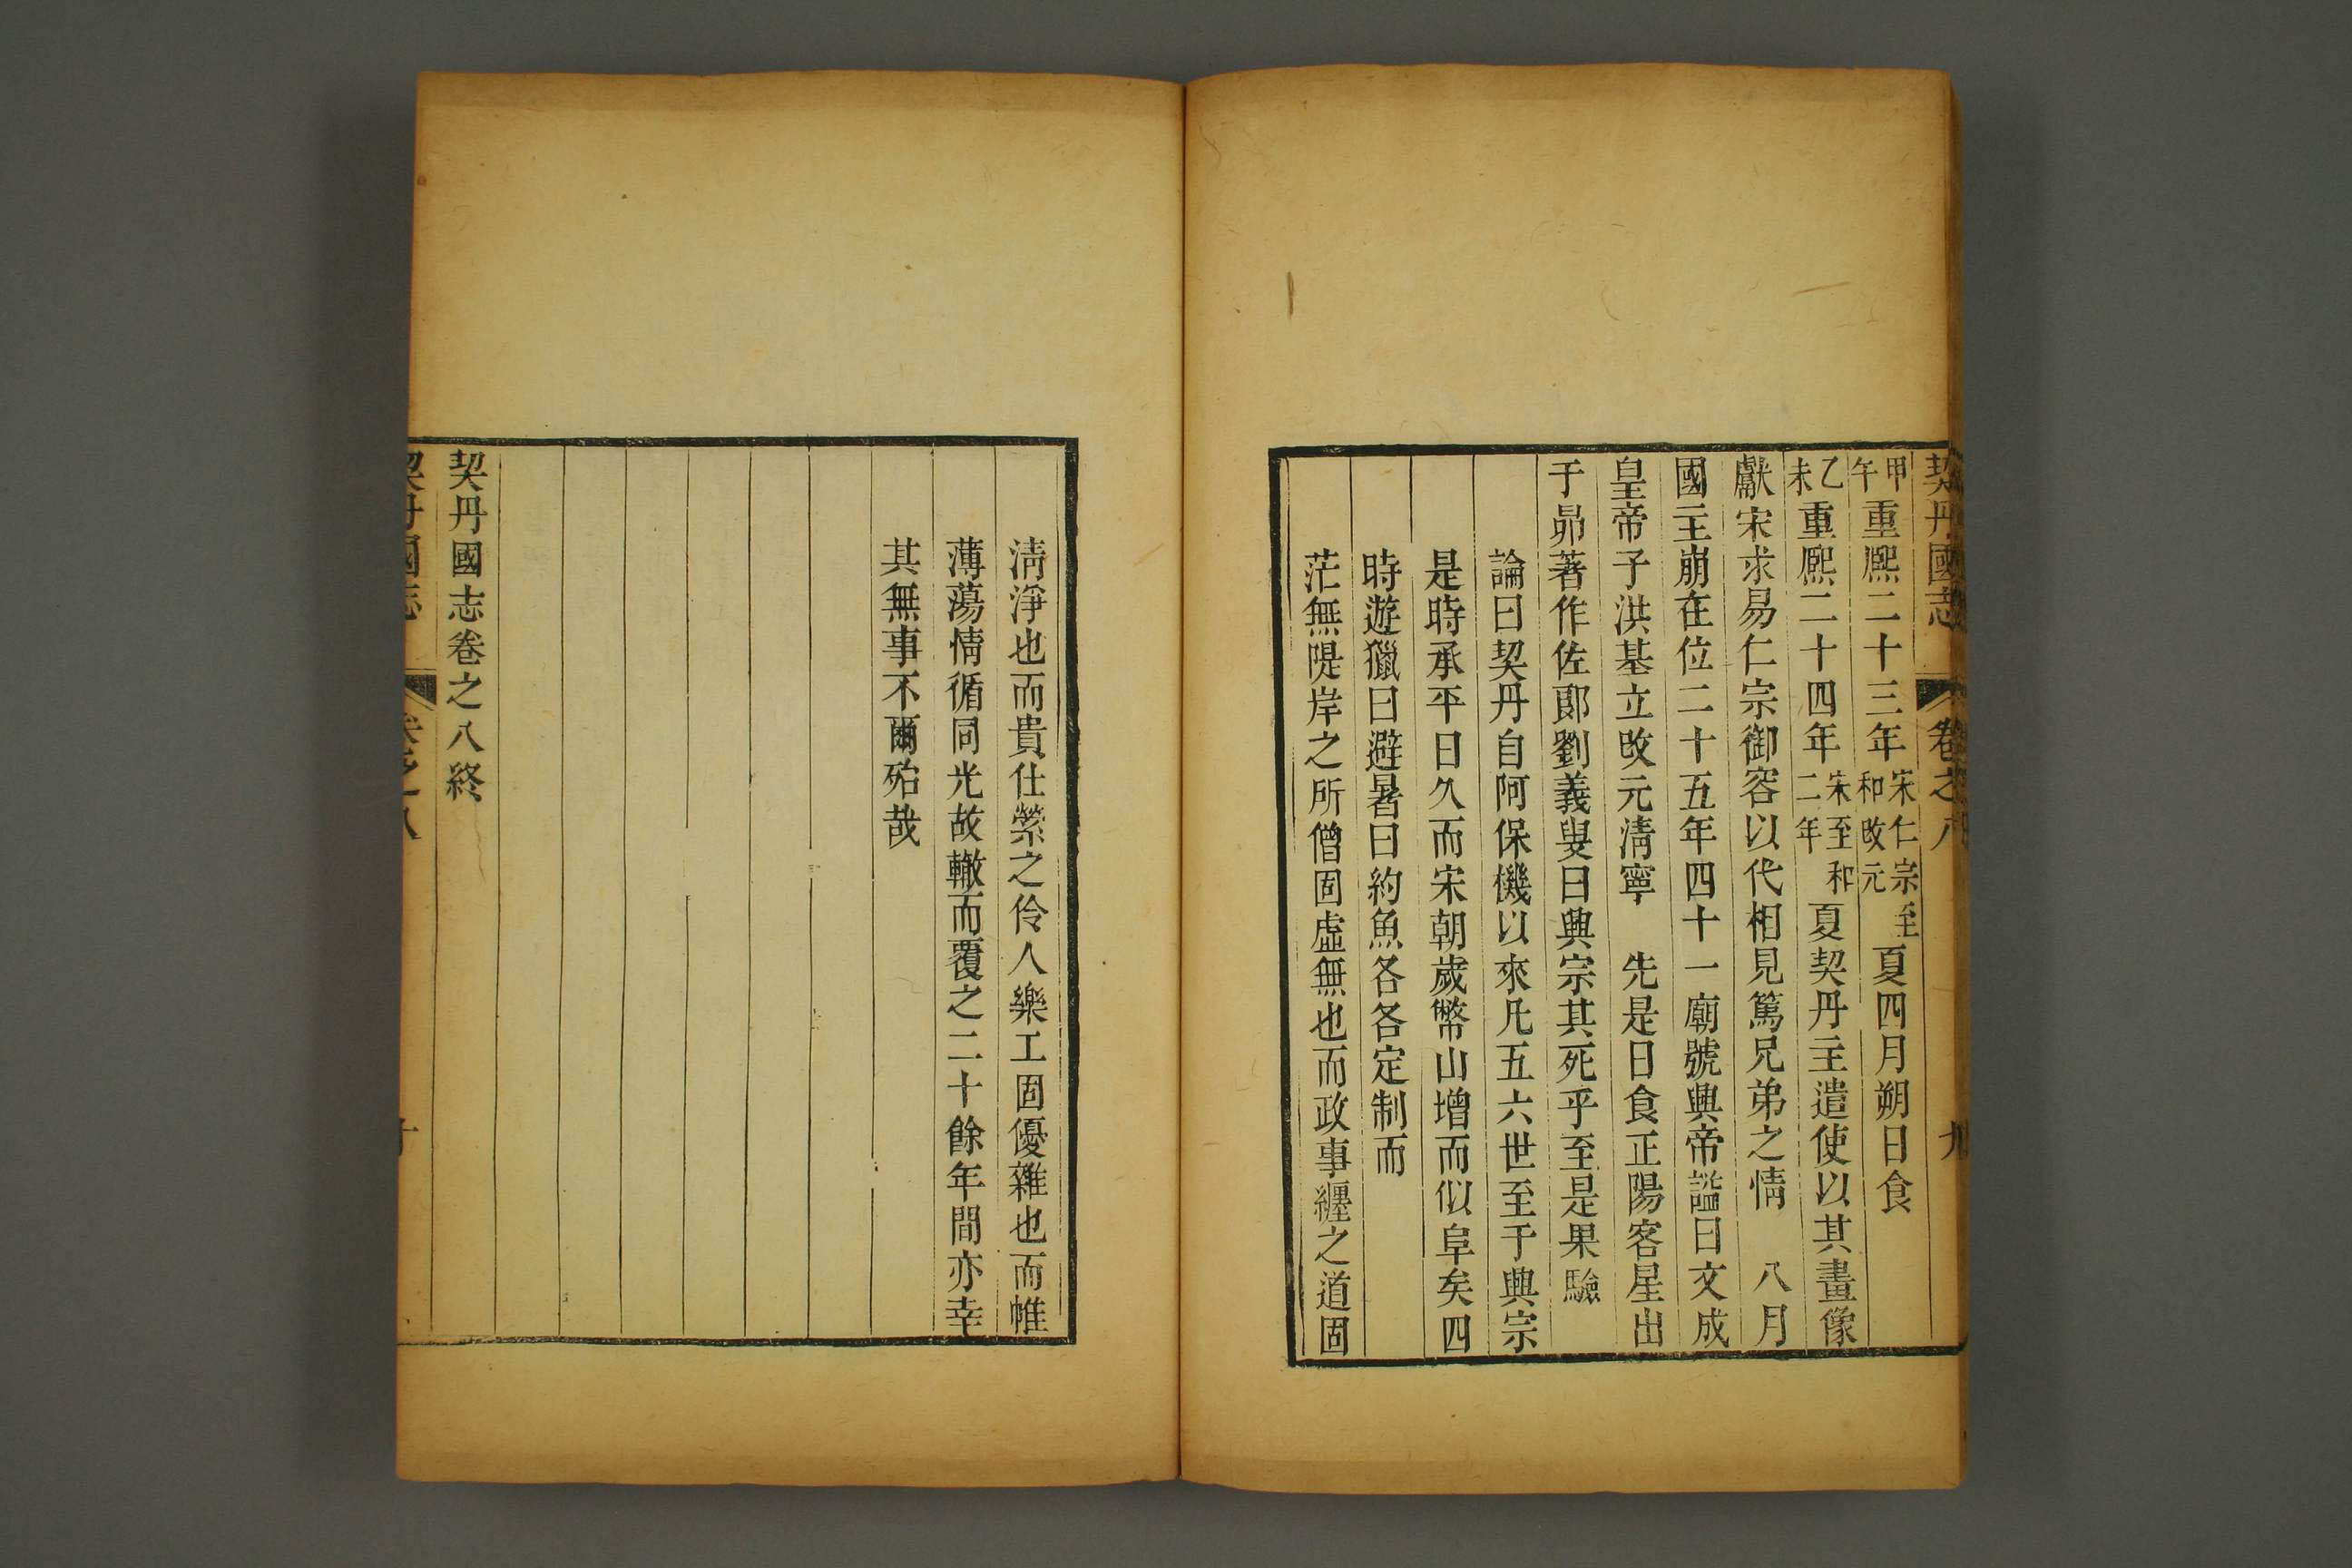 契丹國志 卷之八 九
甲午重熙二十三年宋仁宗至和改元夏四月朔日食
乙未重熙二十四年宋至和二年夏契丹主遣使以其畫像
獻宋求易仁宗御容以代相見篤兄弟之情 八月
國主崩在位二十五年四十一廟號興帝謚曰文成
皇帝子洪基立改元清寧 先是日食正陽客星出
于昴著作佐郞劉義叟曰興宗其死乎至是果驗
論曰契丹自阿保機以來凡五六世至于興宗
是時承平日久而宋朝歲幣山增而似阜矣四
時遊獵曰避暑曰約魚各各定制而
茫無隄岸之所僧固虛無也而政事纏之道固
清淨也而貴仕縈之伶人樂工固優雜也而帷
薄蕩情循同光故轍而覆之二十餘年間亦幸
其無事不爾殆哉
契丹國志卷之八終
契丹國志 卷之八 十